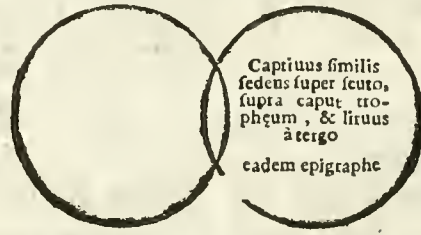 Captiuus ſimilis
ſedens ſuper ſcuto,
ſupra caput tro-
phęum, & lituus
à tergo
eadem epigraphe